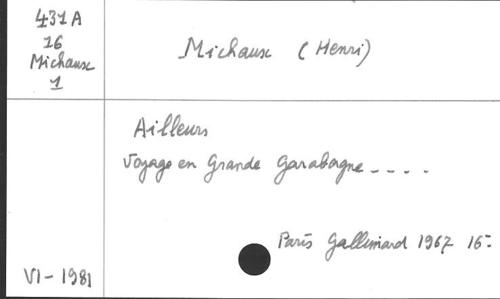 431A
16
Michaux
1
Michaux (Henri)
Ailleurs
Voyage en Grande Garabagne ----.
Paris Gallimard 1967 16-
VI - 1981